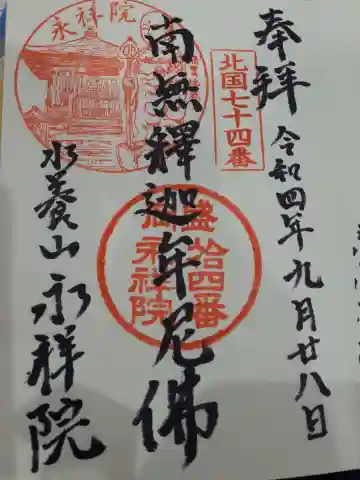 奉拜
令和四年九月廿八日
北国七十四番
南無釋迦牟尼佛
永祥院
拾四番
永祥院
水養山永祥院